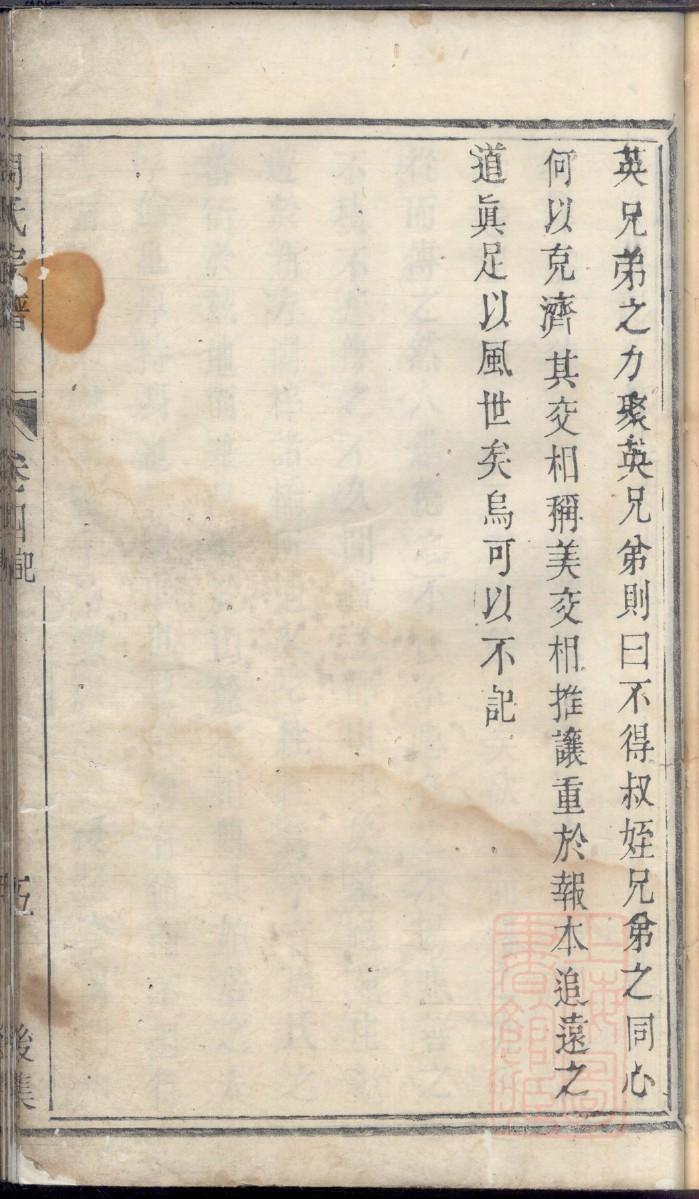 英兄弟之力聚英兄弟則曰不得叔姪兄弟之同心
何以克濟其交相稱美交相推讓重於報本追遠之
道眞足以風世矣烏可以不記
周氏宗譜
卷四記
五
後集
上海圖書館藏